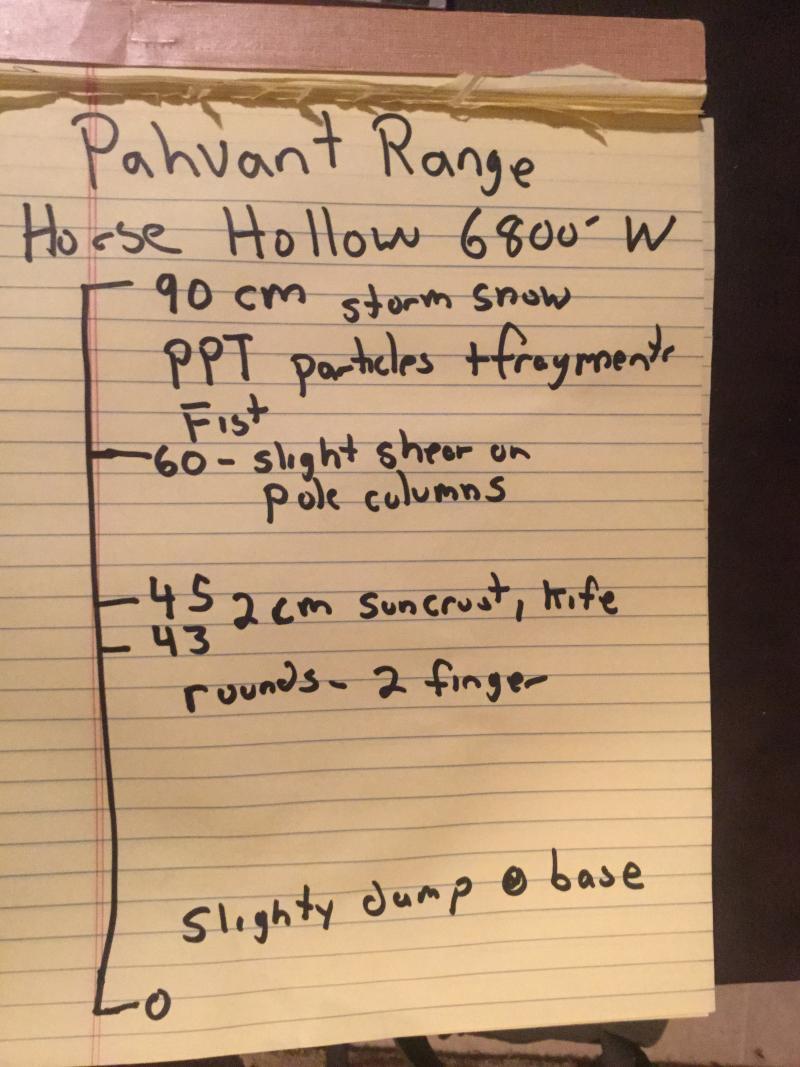 Pahvant Range
Horse Hollow 6800' W
90 cm storm snow
PPT particles + fragments
Fist
60 - slight shear on
pole columns
45 2 cm suncrust, knife
43
rounds - 2 finger
Slighty damp @ base
0